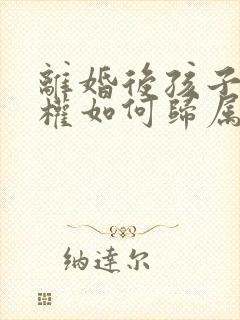 離婚後孩子
權如何歸属
纳達尔